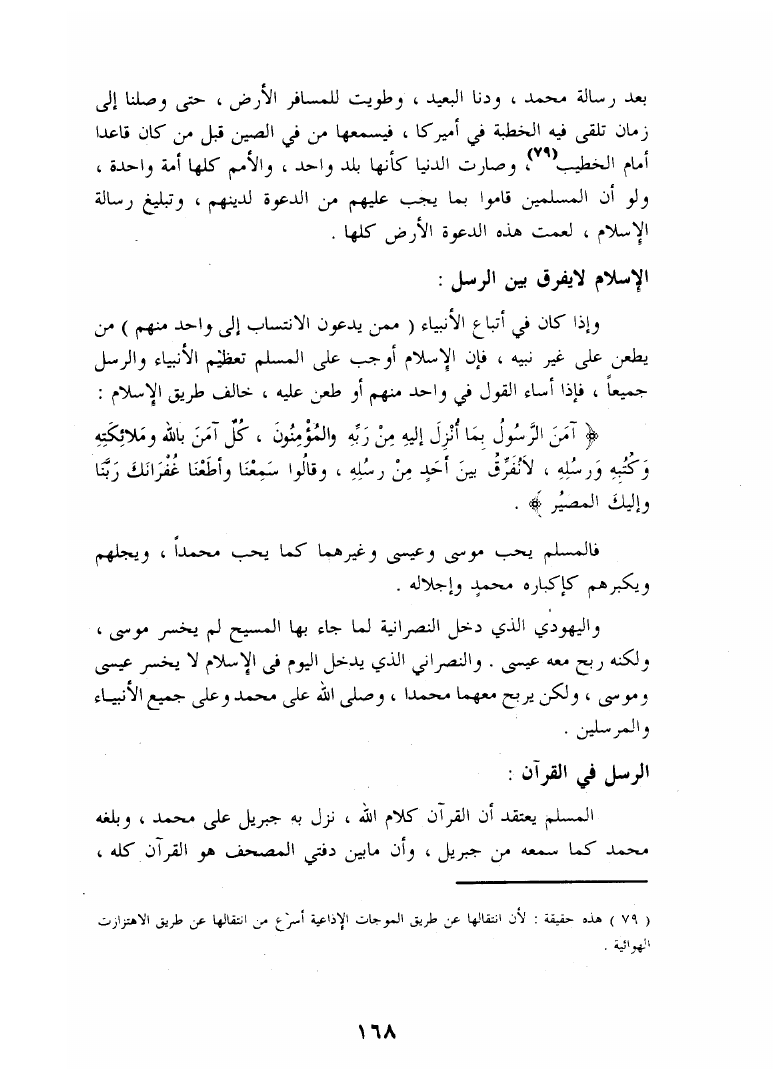 بعد رسالة محمد ، ودنا البعيد ، وطويت للمسافر الأرض ، حتى وصلنا إلى
زمان تلقى فيه الخطبة في أميركا ، فيسمعها من في الصين قبل من كان قاعدا
أمام الخطيب(٧٩)، وصارت الدنيا كأنها بلد واحد ، والأمم كلها أمة واحدة ،
ولو أن المسلمين قاموا بما يجب عليهم من الدعوة لدينهم ، وتبليغ رسالة
الإسلام ، لعمت هذه الدعوة الأرض كلها .
الإسلام لايفرق بين الرسل :
وإذا كان في أتباع الأنبياء ( ممن يدعون الانتساب إلى واحد منهم ) من
يطعن على غير نبيه ، فإن الإسلام أوجب على المسلم تعظيم الأنبياء والرسل
جميعاً ، فإذا أساء القول في واحد منهم أو طعن عليه ، خالف طريق الإسلام :
﴿ آمَنَ الرَّسُولُ بِمَا أُنْزِلَ إليهِ مِنْ رَبِّهِ والمُؤْمِنُونَ ، كُلٌ آمَنَ بالله ومَلائِكَتِهِ
وَكُتُبِهِ وَرسُلِهِ ، لاَنُفَرِّقُ بينَ أَحَدٍ مِنْ رسُلِهِ ، وقالُوا سَمِعْنَا وأطَعْنَا غُفْرَانَكَ رَبَّنَا
وإليكَ المصيُر ﴾ .
فالمسلم يحب موسى وعيسى وغيرهما كما يحب محمداً ، ويجلهم
ويكبرهم كإكباره محمدٍ وإجلاله .
واليهودي الذي دخل النصرانية لما جاء بها المسيح لم يخسر موسى ،
ولكنه ربح معه عيسى . والنصراني الذي يدخل اليوم في الإسلام لا يخسر عيسى
وموسى ، ولكن يربح معهما محمدا ، وصلى الله على محمد وعلى جميع الأنبيـاء
والمرسلين .
الرسل في القرآن :
المسلم يعتقد أن القرآن كلام الله ، نزل به جبريل على محمد ، وبلغه
محمد كما سمعه من جبريل ، وأن مابين دفتي المصحف هو القرآن كله ،
( ٧٩ ) هذه حقيقة : لأن انتقالها عن طريق الموجات الإذاعية أسرع من انتقالها عن طريق الاهتزازت
الهوائية .
١٦٨